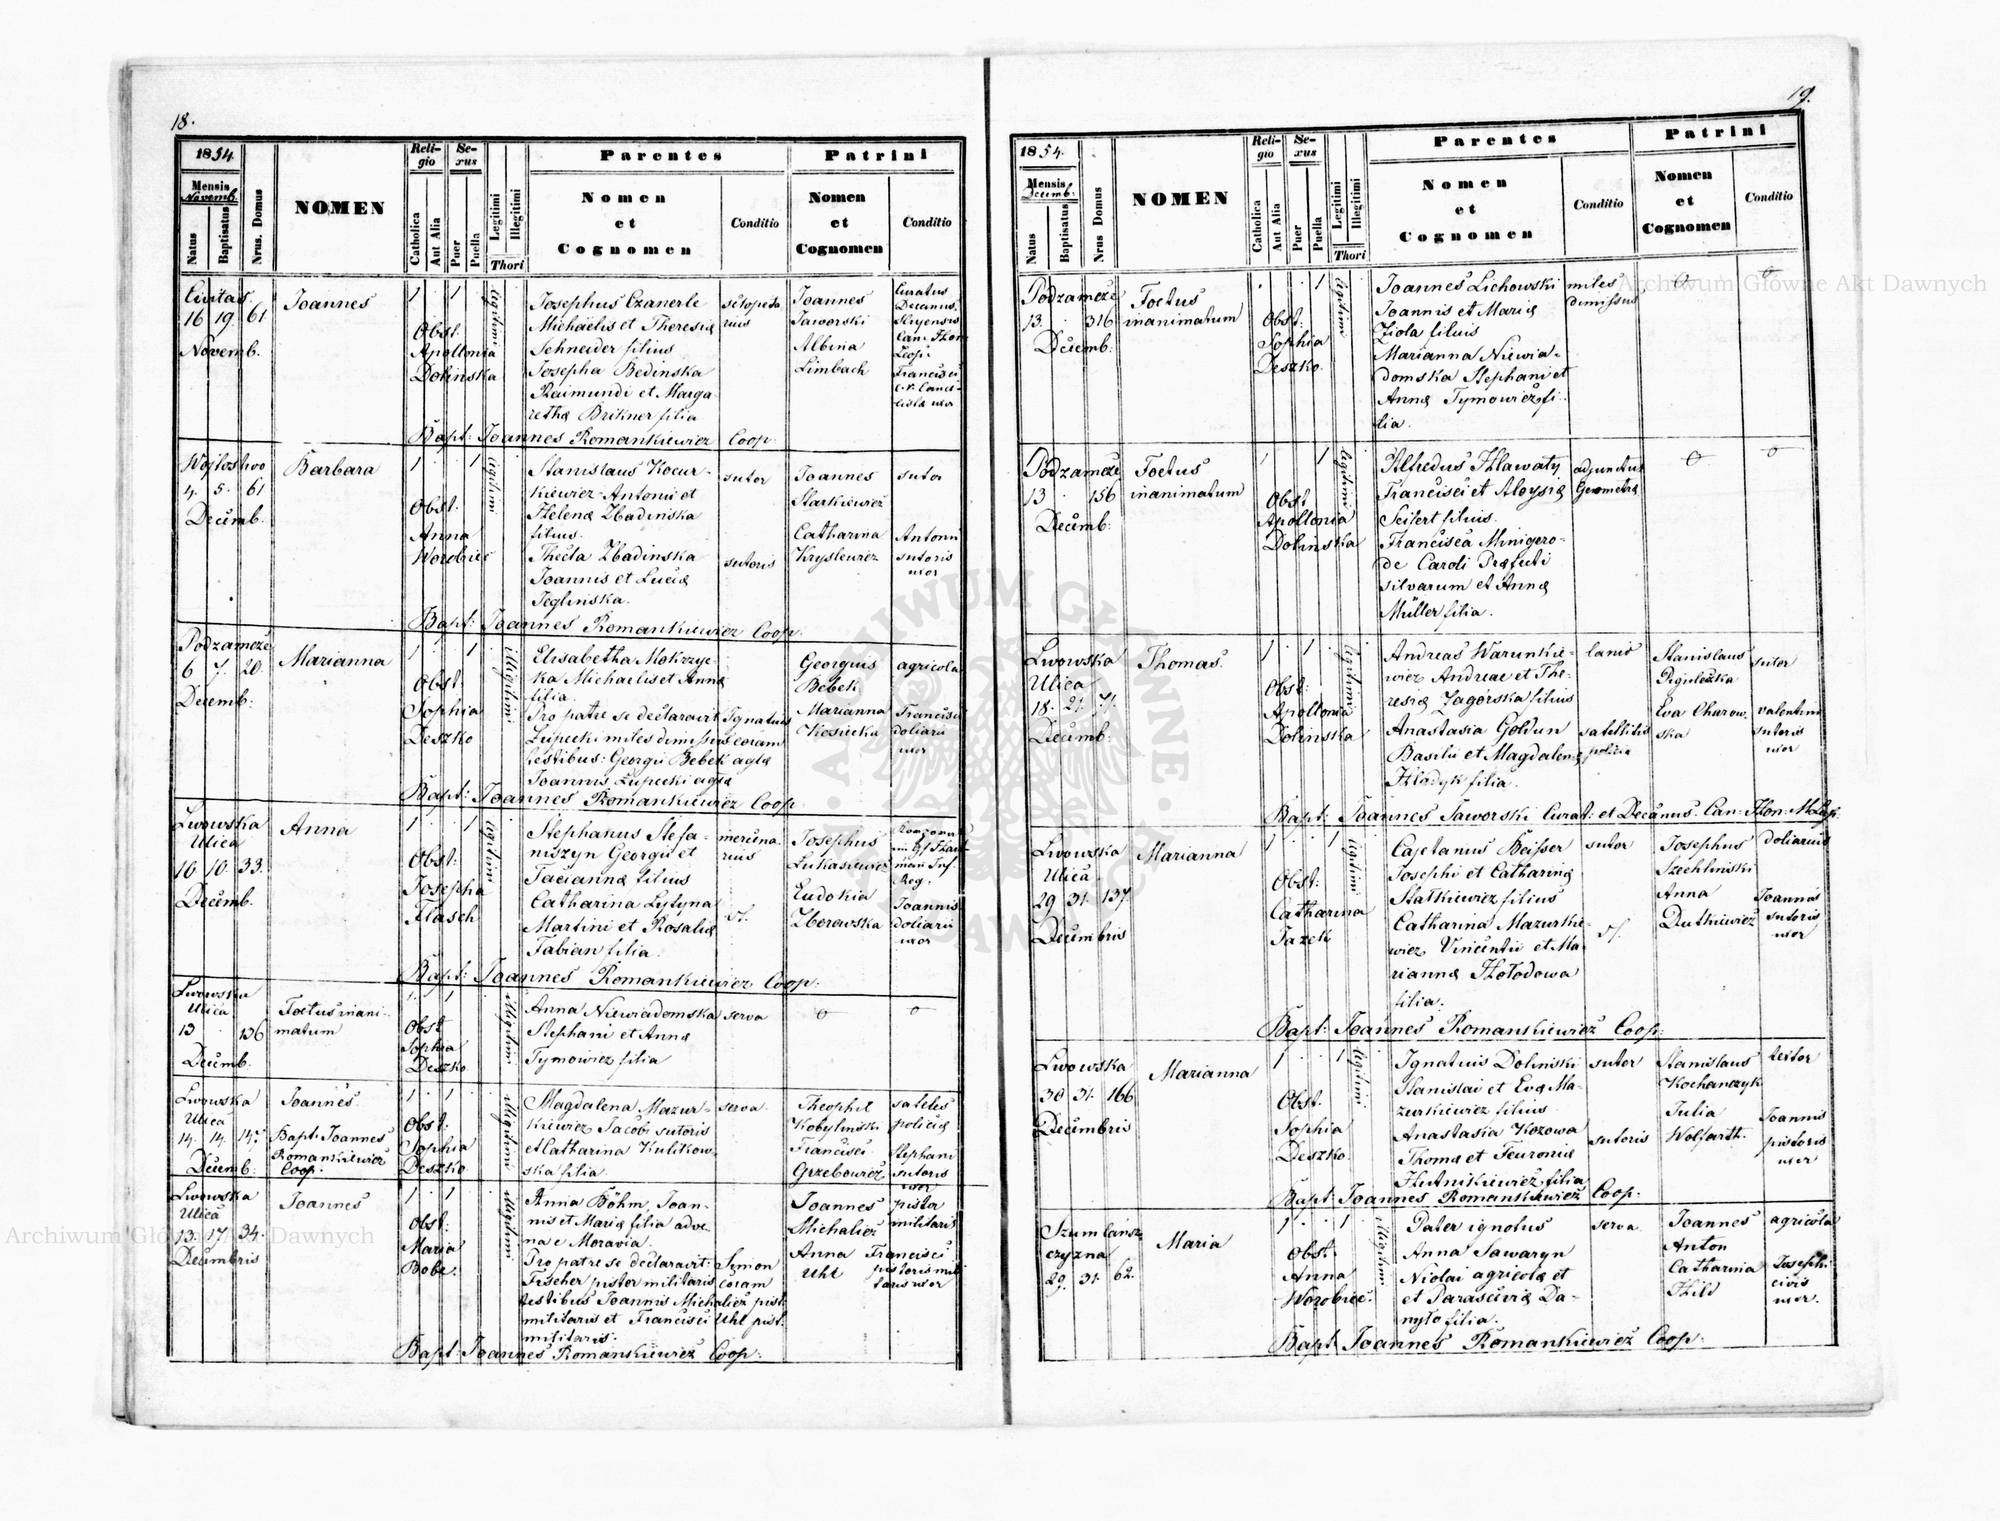 18.
1854.
Mensis
Novemb.
Natus
Baptisatus
Nrus. Domus
NOMEN
Religio
Catholica
Aut Alia
Sexus
Puer
Puella
Legitimi
Illegitimi
Thori
Parentes
Nomen
et
Cognomen
Conditio
Patrini
Nomen
et
Cognomen
Conditio
Civitas
16 19. 61
Novemb.
Joannes
1 1
Obst.
Apollonia
Dolinska
legitimi
Josephus Czanerle
Michaelis et Theresiæ
Schneider filius
Josepha Bedinska
Raimundi et Marga-
rethæ Brikner filia
Joannes
Jaworski
Albina
Limbach
Curatus
Decanus
Francisci
Bapt: Joannes Romankiewicz Coop.
Wojtostwo
4. 5. 61
Decemb.
Barbara
1 1
Obst.
Anna
Worobiec
legitimi
Stanislaus Kocur-
kiewicz Antonii et
Helenæ Zbadinska
filius.
Thecla Zbadinska
Joannis et Luciæ
Teglinska.
sutor
sutoris
Joannes
Starkiewicz
Catharina
Krysiewicz
sutor
Antonii
sutoris
uxor
Bapt: Joannes Romankiewicz Coop.
Podzamcze
6 7. 20.
Decemb:
Marianna
1 1
Obst:
Sophia
Deszko
illegitimi
Elisabetha Mokrzyc-
ka Michaelis et Annæ
filia.
Pro patre se declaravit Ignatius
Łupecki miles dimissus coram
testibus: Georgii Bebek aglæ
Joannis Łupecki aglæ
Georgius
Bebek
Marianna
Kosiecka
agricola
Francisci
doliarii
uxor
Bapt: Joannes Romankiewicz Coop.
Lwowska
Ulica
10. 10. 33.
Decemb.
Anna
1 1
Obst:
Josepha
Flasch
legitimi
Stephanus Stefa-
niszyn Georgii et
Tacianna filius
Catharina Lytyna
Martini et Rosaliæ
Fabian filia.
mercena-
rius
Josephus
Lukasiewicz
Eudokia
Zborowska
Joannis
doliarii
uxor
Bapt: Joannes Romankiewicz Coop:
Lwowska
Ulica
13 136
Decemb.
Foetus inani-
matum
1 1
Obst
Sophia
Deszko
illegitimi
Anna Niewiadomska
Stephani et Annæ
Tymowicz filia
serva
0 0
Lwowska
Ulica
14. 14. 147
Decemb:
Joannes.
Bapt: Joannes
Romankiewicz
Coop.
1 1
Obst:
Sophia
Deszko
illegitimi
Magdalena Mazur-
kiewicz Jacobi sutoris
et Catharina Kulikow-
ska filia.
serva.
Theophil
Kobylinski
Francisci
Grzebowicz
sateles
policiæ
Stephani
sutoris
uxor
Lwowska
Ulica
13. 17. 34.
Decembris
Joannes
1 1
Obst:
Maria
Bobe.
illegitimi
Anna Böhm, Joan-
nis et Mariæ filia adve-
na e Moravia.
Pro patre se declaravit: Simon
Fischer pistor militaris coram
testibus Joannis Michalicz pist:
militaris et Francisci Uhl pist:
militaris.
Joannes
Michalicz
Anna
Uhl
pistor
militaris
Francisci
pistoris mili-
taris uxor
Bapt: Joannes Romankiewicz Coop:
19.
1854.
Mensis
Decemb.
Natus
Baptisatus
Nrus Domus
NOMEN
Religio
Catholica
Aut Alia
Sexus
Puer
Puella
Legitimi
Illegitimi
Thori
Parentes
Nomen
et
Cognomen
Conditio
Patrini
Nomen
et
Cognomen
Conditio
Podzamcze
13 316
Decemb:
Foetus
inanimatum
1
Obst:
Sophia
Deszko.
legitimi
Joannes Lichowski
Joannis et Mariæ
Ziola filius
Marianna Niewia-
domska Stephani et
Annæ Tymowicz fi-
lia.
miles
dimissus
0 0
Podzamcze
13 156
Decemb:
Foetus
inanimatum
1 1
Obst:
Apollonia
Dolinska
legitimi
Alfredus Hlawaty
Francisci et Aloysiæ
Seifert filius.
Francisca Minigero-
de Caroli Præfecti
silvarum et Annæ
Müller filia.
adjunctus
Geometræ
0 0
Lwowska
Ulica
18. 21. 71.
Decemb:
Thomas.
1 1
Obst:
Apollonia
Dolinska
legitimi
Andreas Warunkie-
wicz Andreae et The-
resiæ Zagórska filius
Anastasia Goldun
Basilii et Magdalenæ
Hlodyk filia.
lanio
satellitis
policiæ
Stanislaus
Eva Charow-
ska
sutor
Valentini
sutoris
uxor
Bapt: Joannes Jaworski Curat: et Decanus. Can: Hon:
Lwowska
Ulica
29 31. 137.
Decembris
Marianna
1 1
Obst:
Catharina
Jazek
legitimi
Cajetanus Beisser
Josephi et Catharinæ
Statkiewicz filius
Catharina Mazurkie-
wicz Vincentii et Ma-
riannæ Hołodowa
filia.
sutor
Josephus
Szechlinski
Anna
Dutkiewicz
doliarius
Joannis
sutoris
uxor
Bapt: Joannes Romankiewicz Coop:
Lwowska
30 31. 166
Decembris
Marianna
1 1
Obst.
Sophia
Deszko.
legitimi
Ignatius Dolinski
Stanislai et Evæ Ma-
zurkiewicz filius
Anastasia Kozowa
Thomæ et Feuroniæ
Hutnikiewicz filia
sutor
sutoris
Stanislaus
Kochanczyk
Julia
Wolfarth.
textor
Joannis
pistoris
uxor
Bapt: Joannes Romankiewicz Coop:
Szumlańsz-
czyzna
29. 31. 62.
Maria
1 1
Obst:
Anna
Worobiec.
illegitimi
Pater ignotus
Anna Sawaryn
Nicolai agricolæ et
et Parasceviæ Da-
nyło filia.
serva
Joannes
Anton
Catharina
Hild
agricola
Josephi
civis
uxor.
Bapt: Joannes Romankiewicz Coop:
Archiwum Główne Akt Dawnych
Archiwum Główne Akt Dawnych